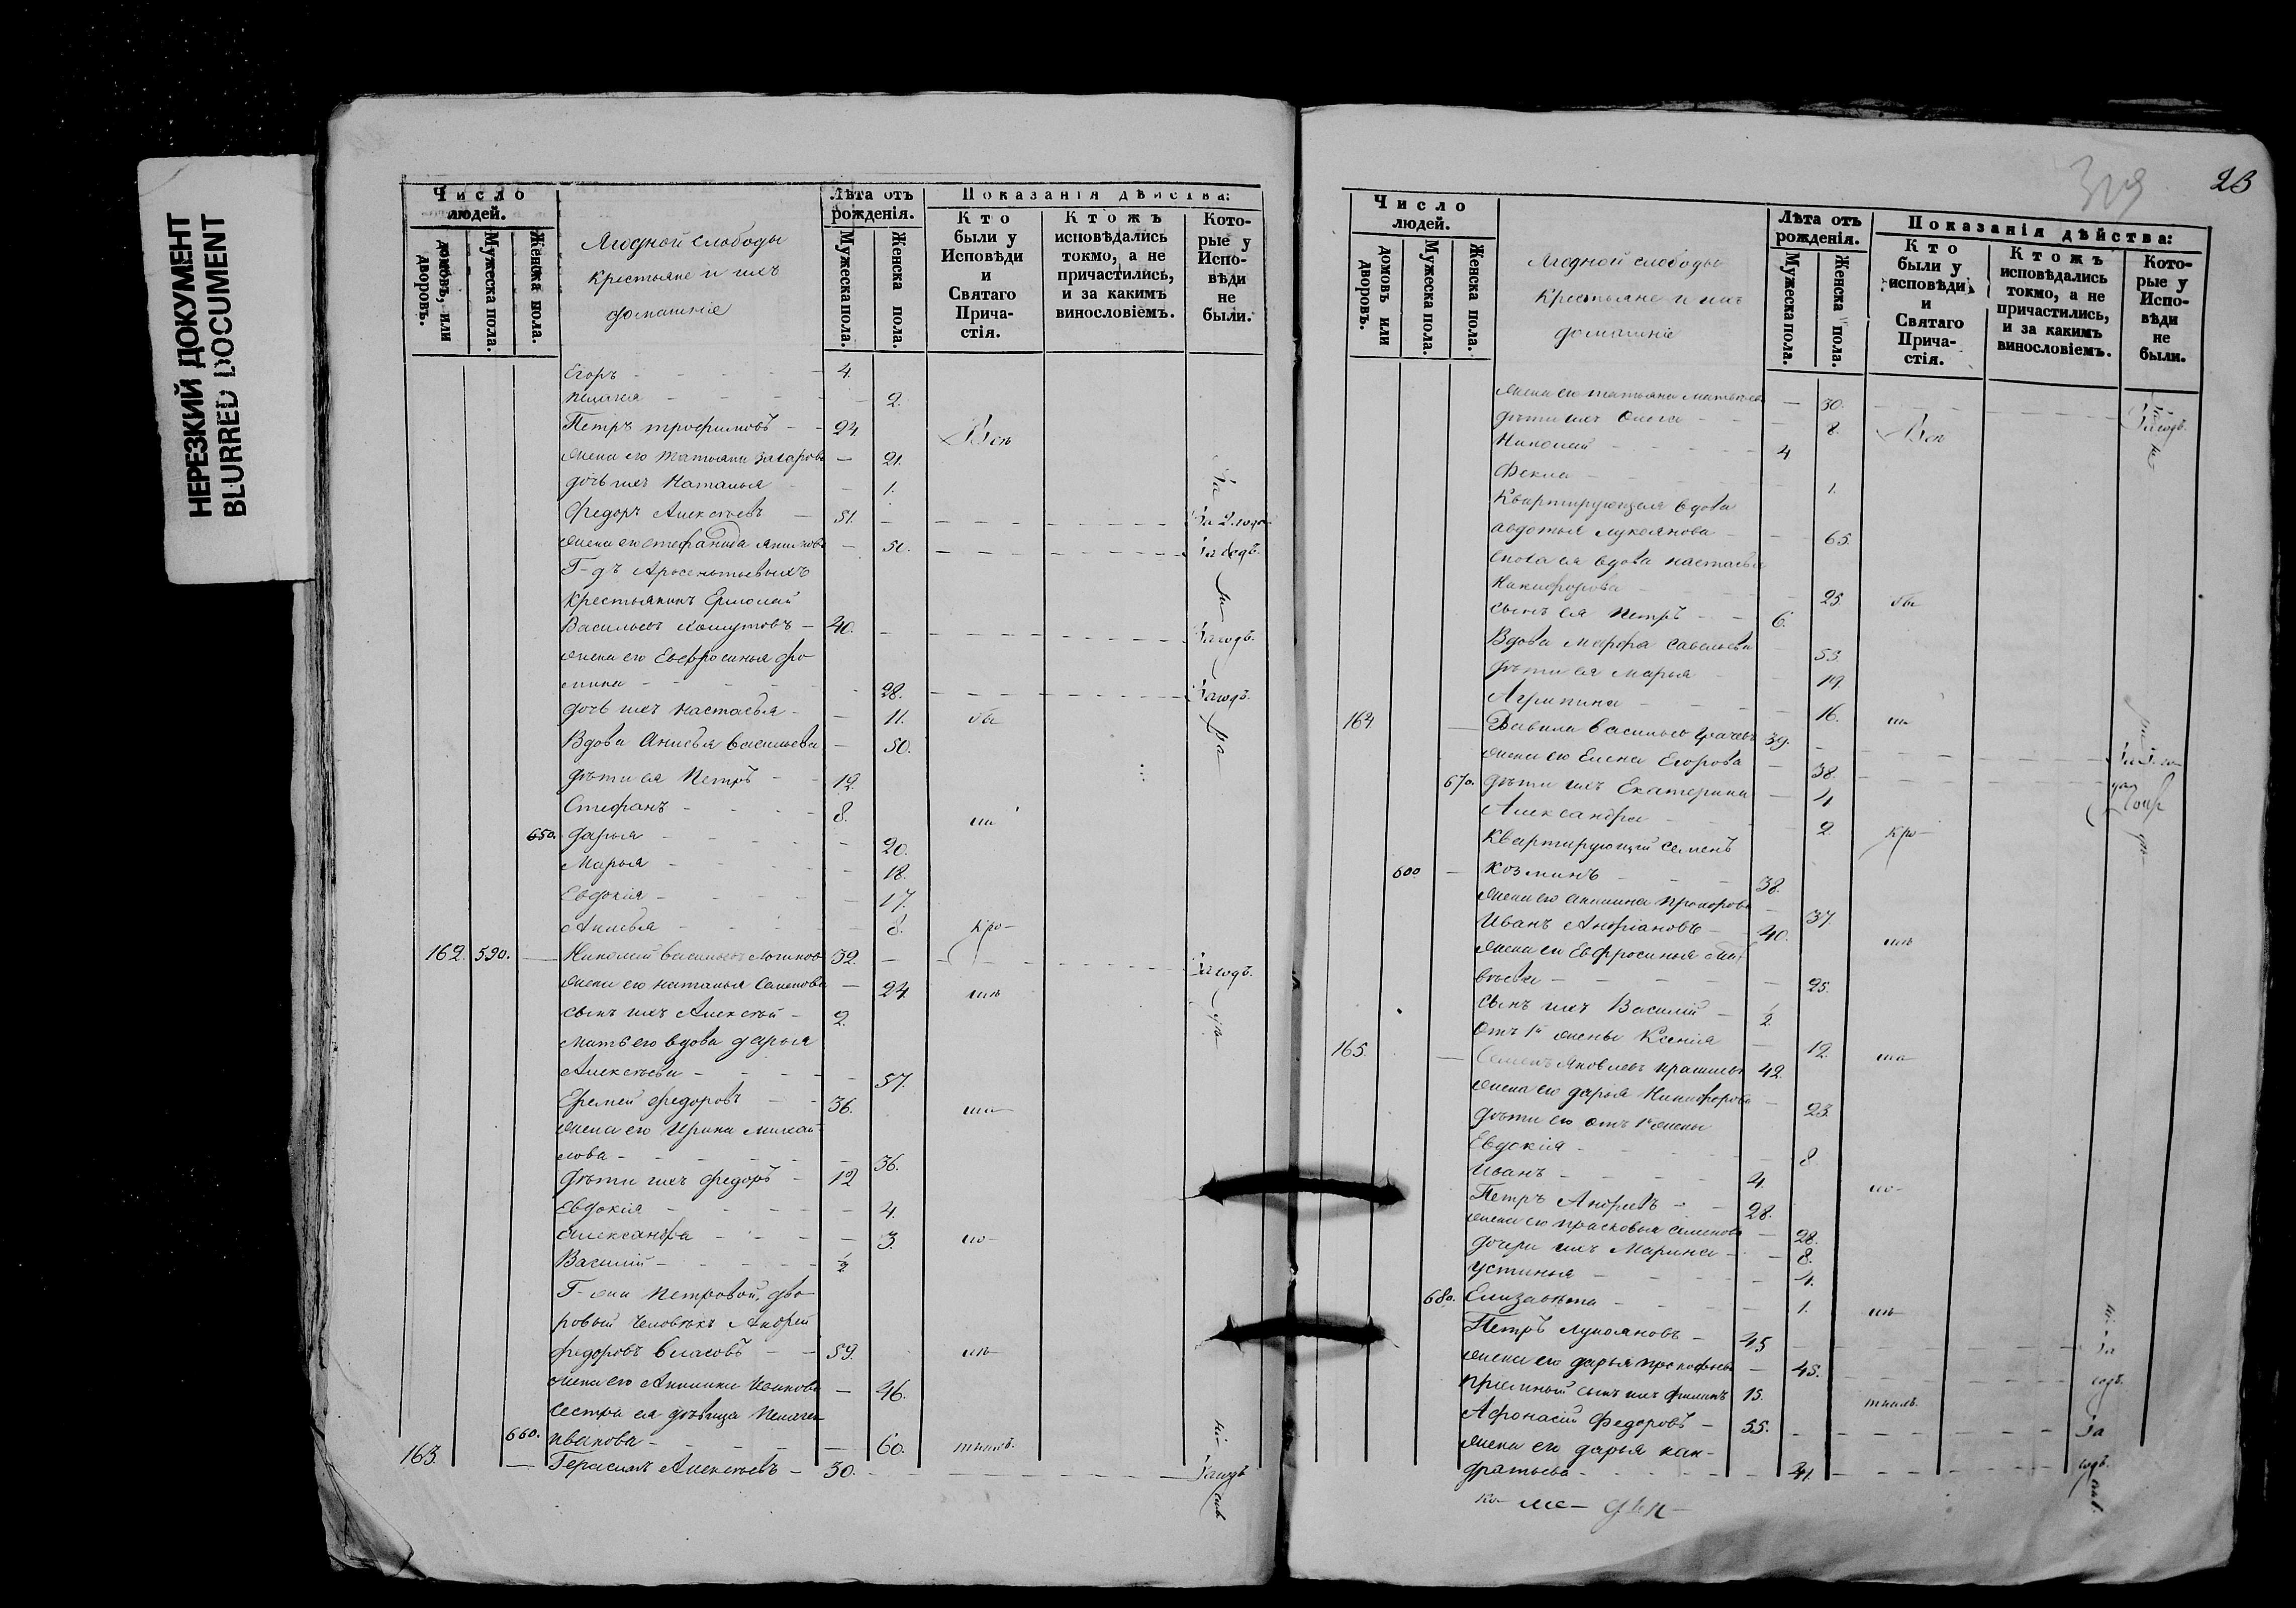 НЕРЕЗКИЙ ДОКУМЕНТ
BLURRED DOCUMENT
Число людей.
домовъ, или дворовъ.
Мужеска пола.
Женска пола.
Ягодной слободы
крестьяне и ихъ
домашніе
Лѣта отъ рожденія.
Мужеска пола.
Женска пола.
Показанія дѣйства:
Кто были у Исповѣди и Святаго Прича-стія.
Ктожъ исповѣдались токмо, а не причастились, и за какимъ винословіемъ.
Кото-рые у Испо-вѣди не были.
Егоръ 4.
Пелагея 2.
Петръ Трофимовъ 24
жена его Татьяна Захарова 21.
дочь ихъ Наталья 1.
Федоръ Алексѣевъ 51. За 2. года
жена его Стефанида 50. За годъ.
Г-дъ Арсеньтьевыхъ
крестьянинъ Ермолай
Васильевъ 40. За годъ.
жена его Евфросинья Фо-
мина 28. За годъ.
дочь ихъ Настасья 11.
Вдова Анисья Васильева 50.
дѣти ея Петръ 12.
Стефанъ 8.
650. Дарья 20.
Марья 18.
Евдокія 17.
Анисья 8.
162. 590. Николай Васильевъ Логиновъ 32. За годъ.
жена его Наталья Семенова 24
сынъ ихъ Алексѣй 2.
мать его вдова Дарья
Алексѣева 57.
Еремей Федоровъ 36.
жена его Ирина Михай-
лова 36.
дѣти ихъ Федоръ 12
Евдокія 4.
Александра 3.
Василій 1/2
Г-жи Петровой, дво-
ровый человѣкъ Андрей
Федоровъ Власовъ 59.
жена его Акилина Иванова 46.
сестра ея дѣвица Пелагея
660. Иванова 60.
163. Герасимъ Алексѣевъ 30. За годъ
23
Число людей.
домовъ или дворовъ.
Мужеска пола.
Женска пола.
Ягодной слободы
крестьяне и ихъ
домашніе
Лѣта отъ рожденія.
Мужеска пола.
Женска пола.
Показанія дѣйства:
Кто были у исповѣди и Святаго Прича-стія.
Ктожъ исповѣдались токмо, а не причастились, и за какимъ винословіемъ.
Кото-рые у Испо-вѣди не были.
жена его Татьяна Матвѣева 30. За годъ.
дѣти ихъ Ольга 8.
Николай 4
Фекла 1.
Квартирующая вдова
Авдотья Лукоянова 65.
сноха ея вдова Настасья
Никифорова 25.
сынъ ея Петръ 6.
Вдова Марфа Савельева 53.
дѣти ея Марья 19.
Агрипина 16.
164 Вавила Васильевъ Грачевъ 39.
жена его Елена Егорова 38.
670. дѣти ихъ Екатерина 4
Александра 2
Квартирующій Семенъ
600 Козминъ 38.
жена его Акилина Прохорова 37.
Иванъ Андріановъ 40.
жена его Евфросинья Мат-
вѣева 25.
сынъ ихъ Василій 1/2
отъ 1й жены Ксенія 12.
165. Семенъ Яковлевъ 42.
жена его Дарья Никифорова 23.
дѣти его отъ 1й жены
Евдокія 8
Иванъ 4.
Петръ Андреевъ 28.
жена его Прасковья Семенова 28.
дочери ихъ Марина 8.
Устинья 4.
680. Елизавета 1.
Петръ Лукояновъ 45
жена его Дарья Прокофьева 45. За годъ.
пріемный сынъ ихъ Филипъ 15.
Афонасій Федоровъ 55. За
жена его Дарья Кон-
дратьева 41. годъ.